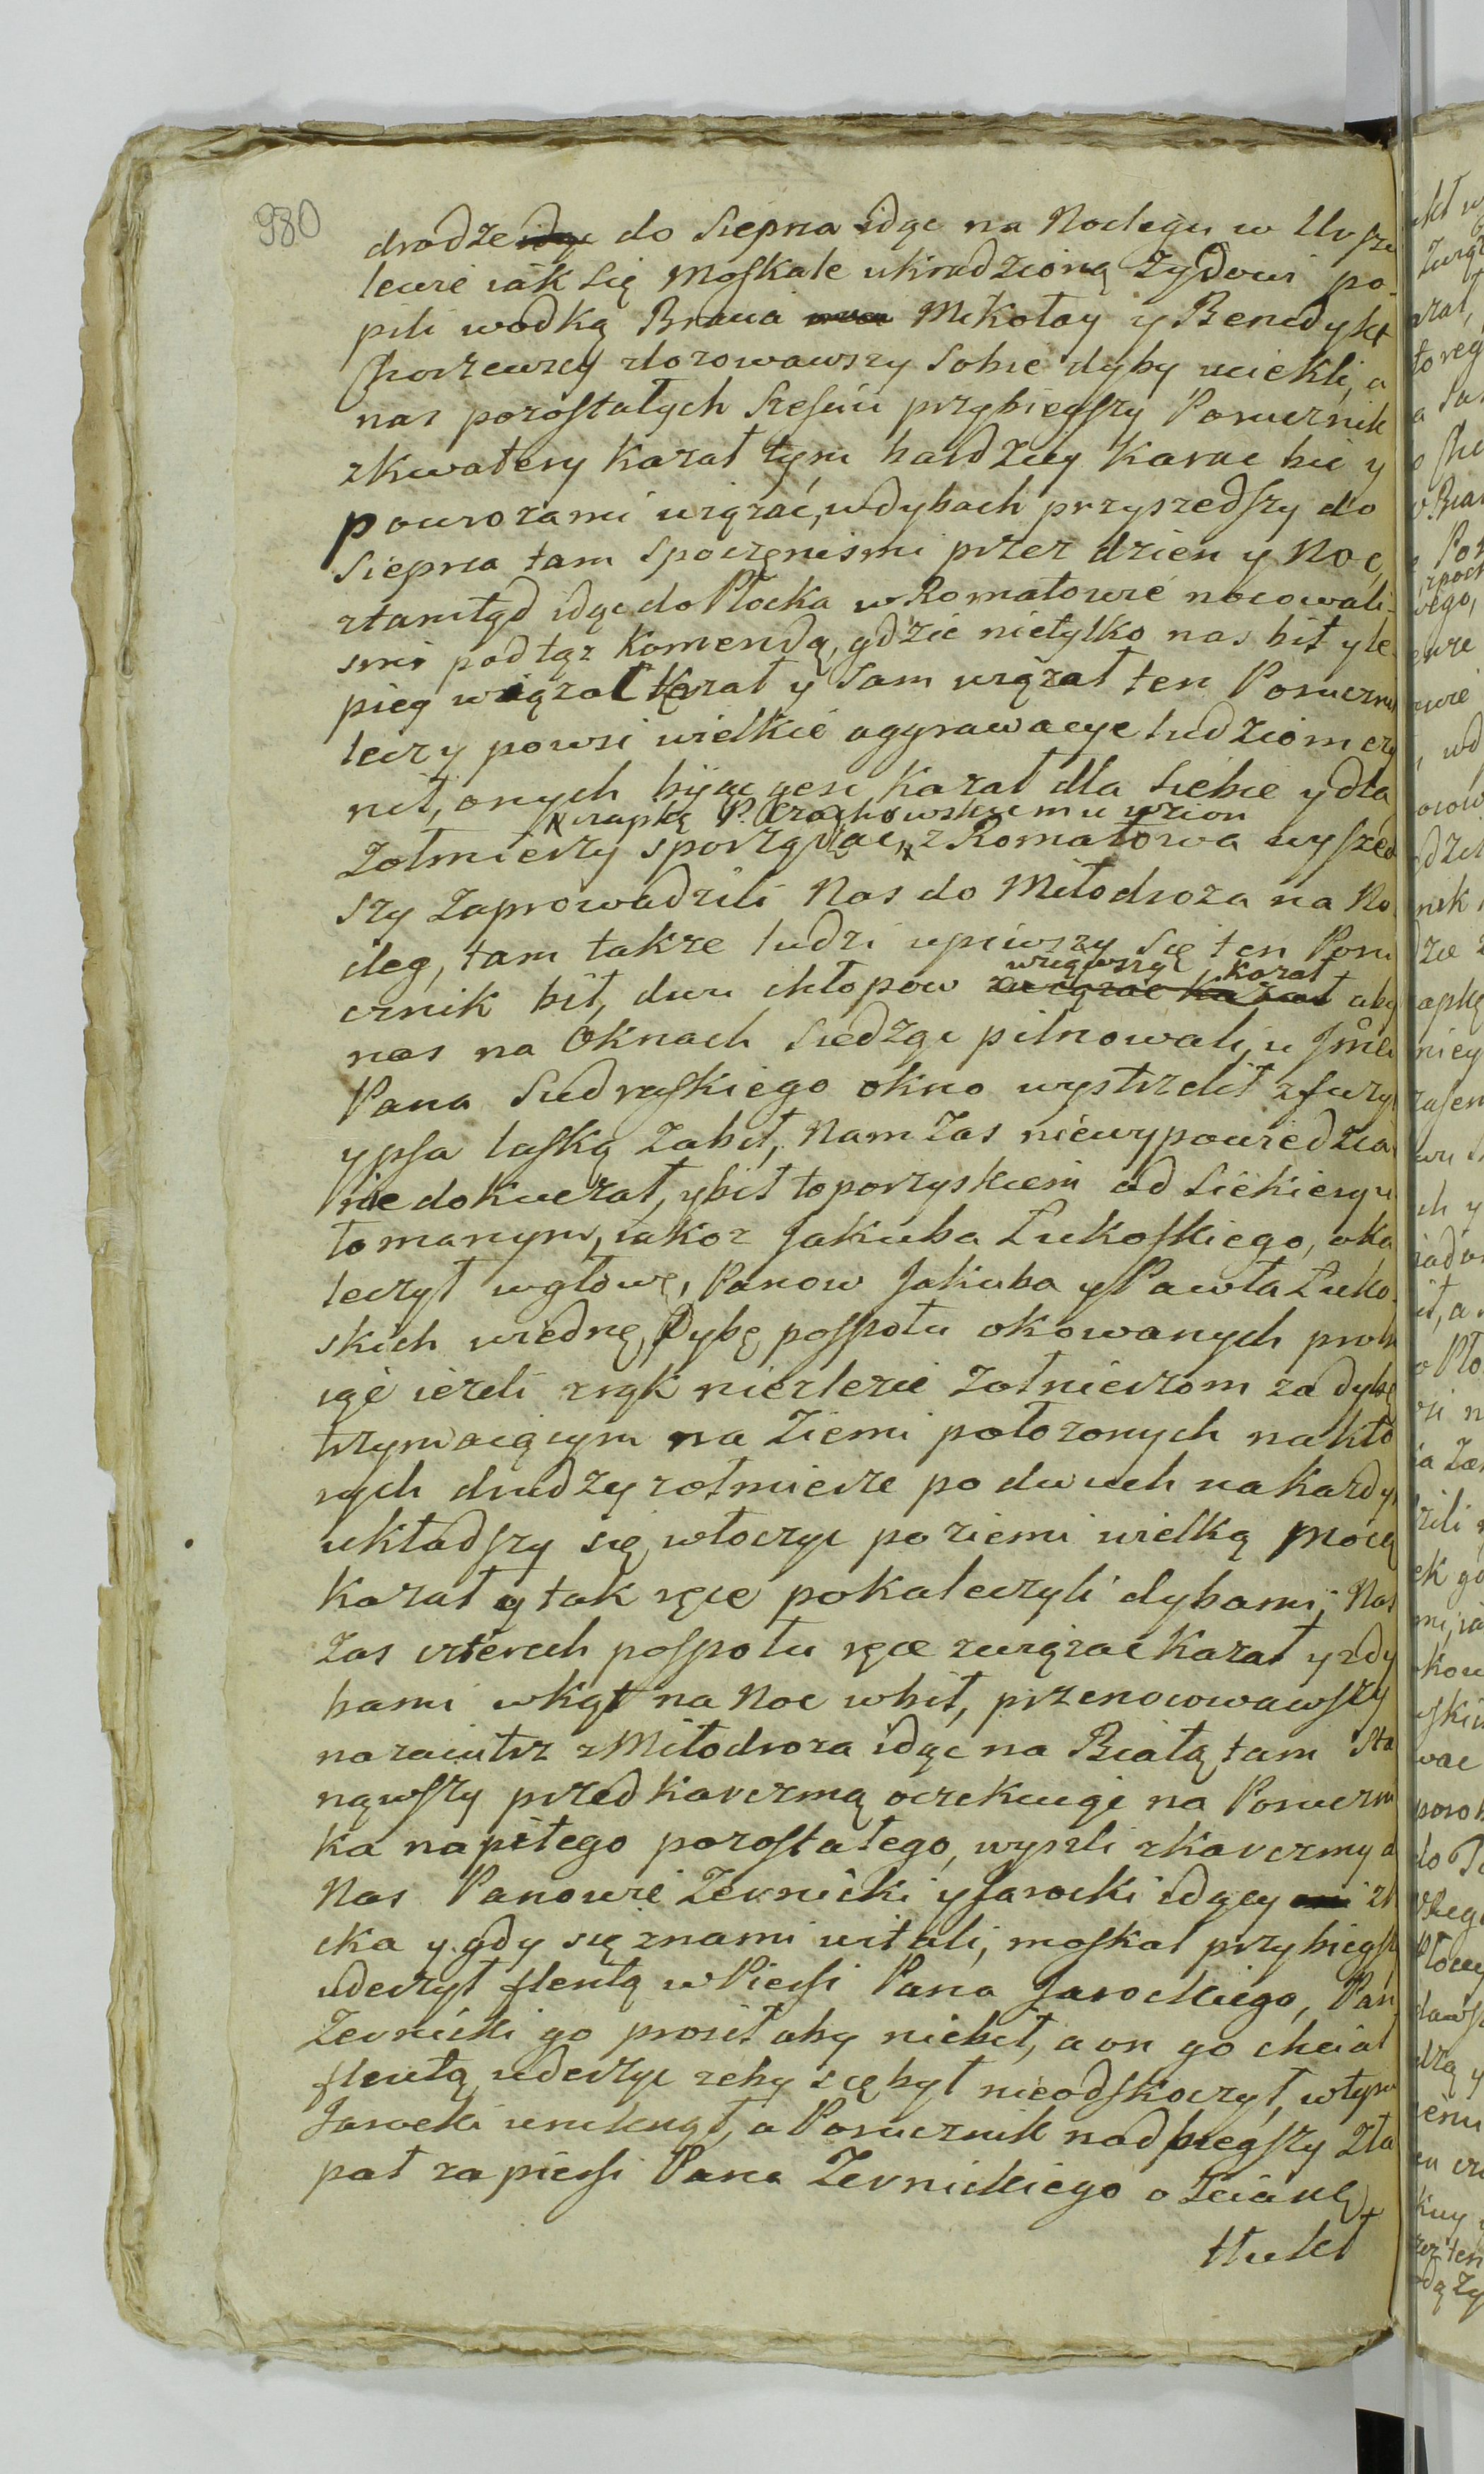 980
drodze idąc do Siepca idąc na Noclegu w Ursze
lewie iak się Moskale ukradzioną Zydowi po-
pili wodką Bracia Mikołay y Benedykt
Chorzewscy zdorowawszy Sobie dyby uciekli, a
nas pozostałych Sześciu przybiegszy Porucznik
z kwatery kazał tym bardziey Karać bić y
powrozami wiązać, w dybach przyszedszy do
Siepca tam spoczęnismi przez dzien y Noc,
ztamtąd idąc do Płocka w Romatowie nocowali-
smi pod tąz Komendą, gdzie nietylko nas bił y le-
piey wiązał Kazał y Sam wiązał ten Porucznik
lecz y powsi wielkie aggrawacye ludziom czy
nił, onych biiąc jesc Kazał dla Siebie y dla
czapkę P. Czachowskiemu wzion
Zołmierzy sporządzac, z Romatowa wyszed
szy Zaprowadzili Nas do Miłodroza na No
cleg, tam takze ludzi upiwszy się ten Poru
wziąwszy kazał
cznik bił, dwu chłopow związac kazał aby
nas na Oknach Siedząc pilnowali, u Jmci
Pana Sudraskiego okno wystrzelił z fuzyi
y psa laską Zabił, Nam Zas niewypowiedzia
nie dokuczał, y bił toporzyskiem od Siekiery u
łomanym, iakoz Jakuba Łukoskiego, oka
leczył w głowę, Panow Jakuba y Pawła Łuko-
skich w iedną Dybę pospołu okowanych probu
iąc iezeli z rąk niezlezie Zołnierzom za dybę
trzymaiącym na Ziemi połozonych na kto
rych drudzy zołmierze po dwuch na kazdym
układszy się, włoczyc po ziemi wielką Mocą
Kazał y tak ręce pokaleczyli dybami, Nas
Zas czterech pospołu ręce związac Kazał y z dy
bami w kąt na Noc wbił, przenocowawszy
nazaiutrz z Miłodroza idąc na Białą tam Sta
nąwszy przed karczmą oczekuiąc na Porucznik
ka napiłego pozostałego, wyszli z karczmy do
Nas Panowie Zernicki y Jarocki idący z Pło
cka y gdy się z nami witali, moskal przybiegszy
uderzył flentą w Piersi Pana Jarockiego, Pan
Zernicki go prosił aby niebił, a on go chciał
flentą uderzyc zeby się był nieodskoczył, w tym
Jarocki umknął, a Porucznik nadbiegszy Zła
pał za piersi Pana Zernickiego o Scianę
tłukł